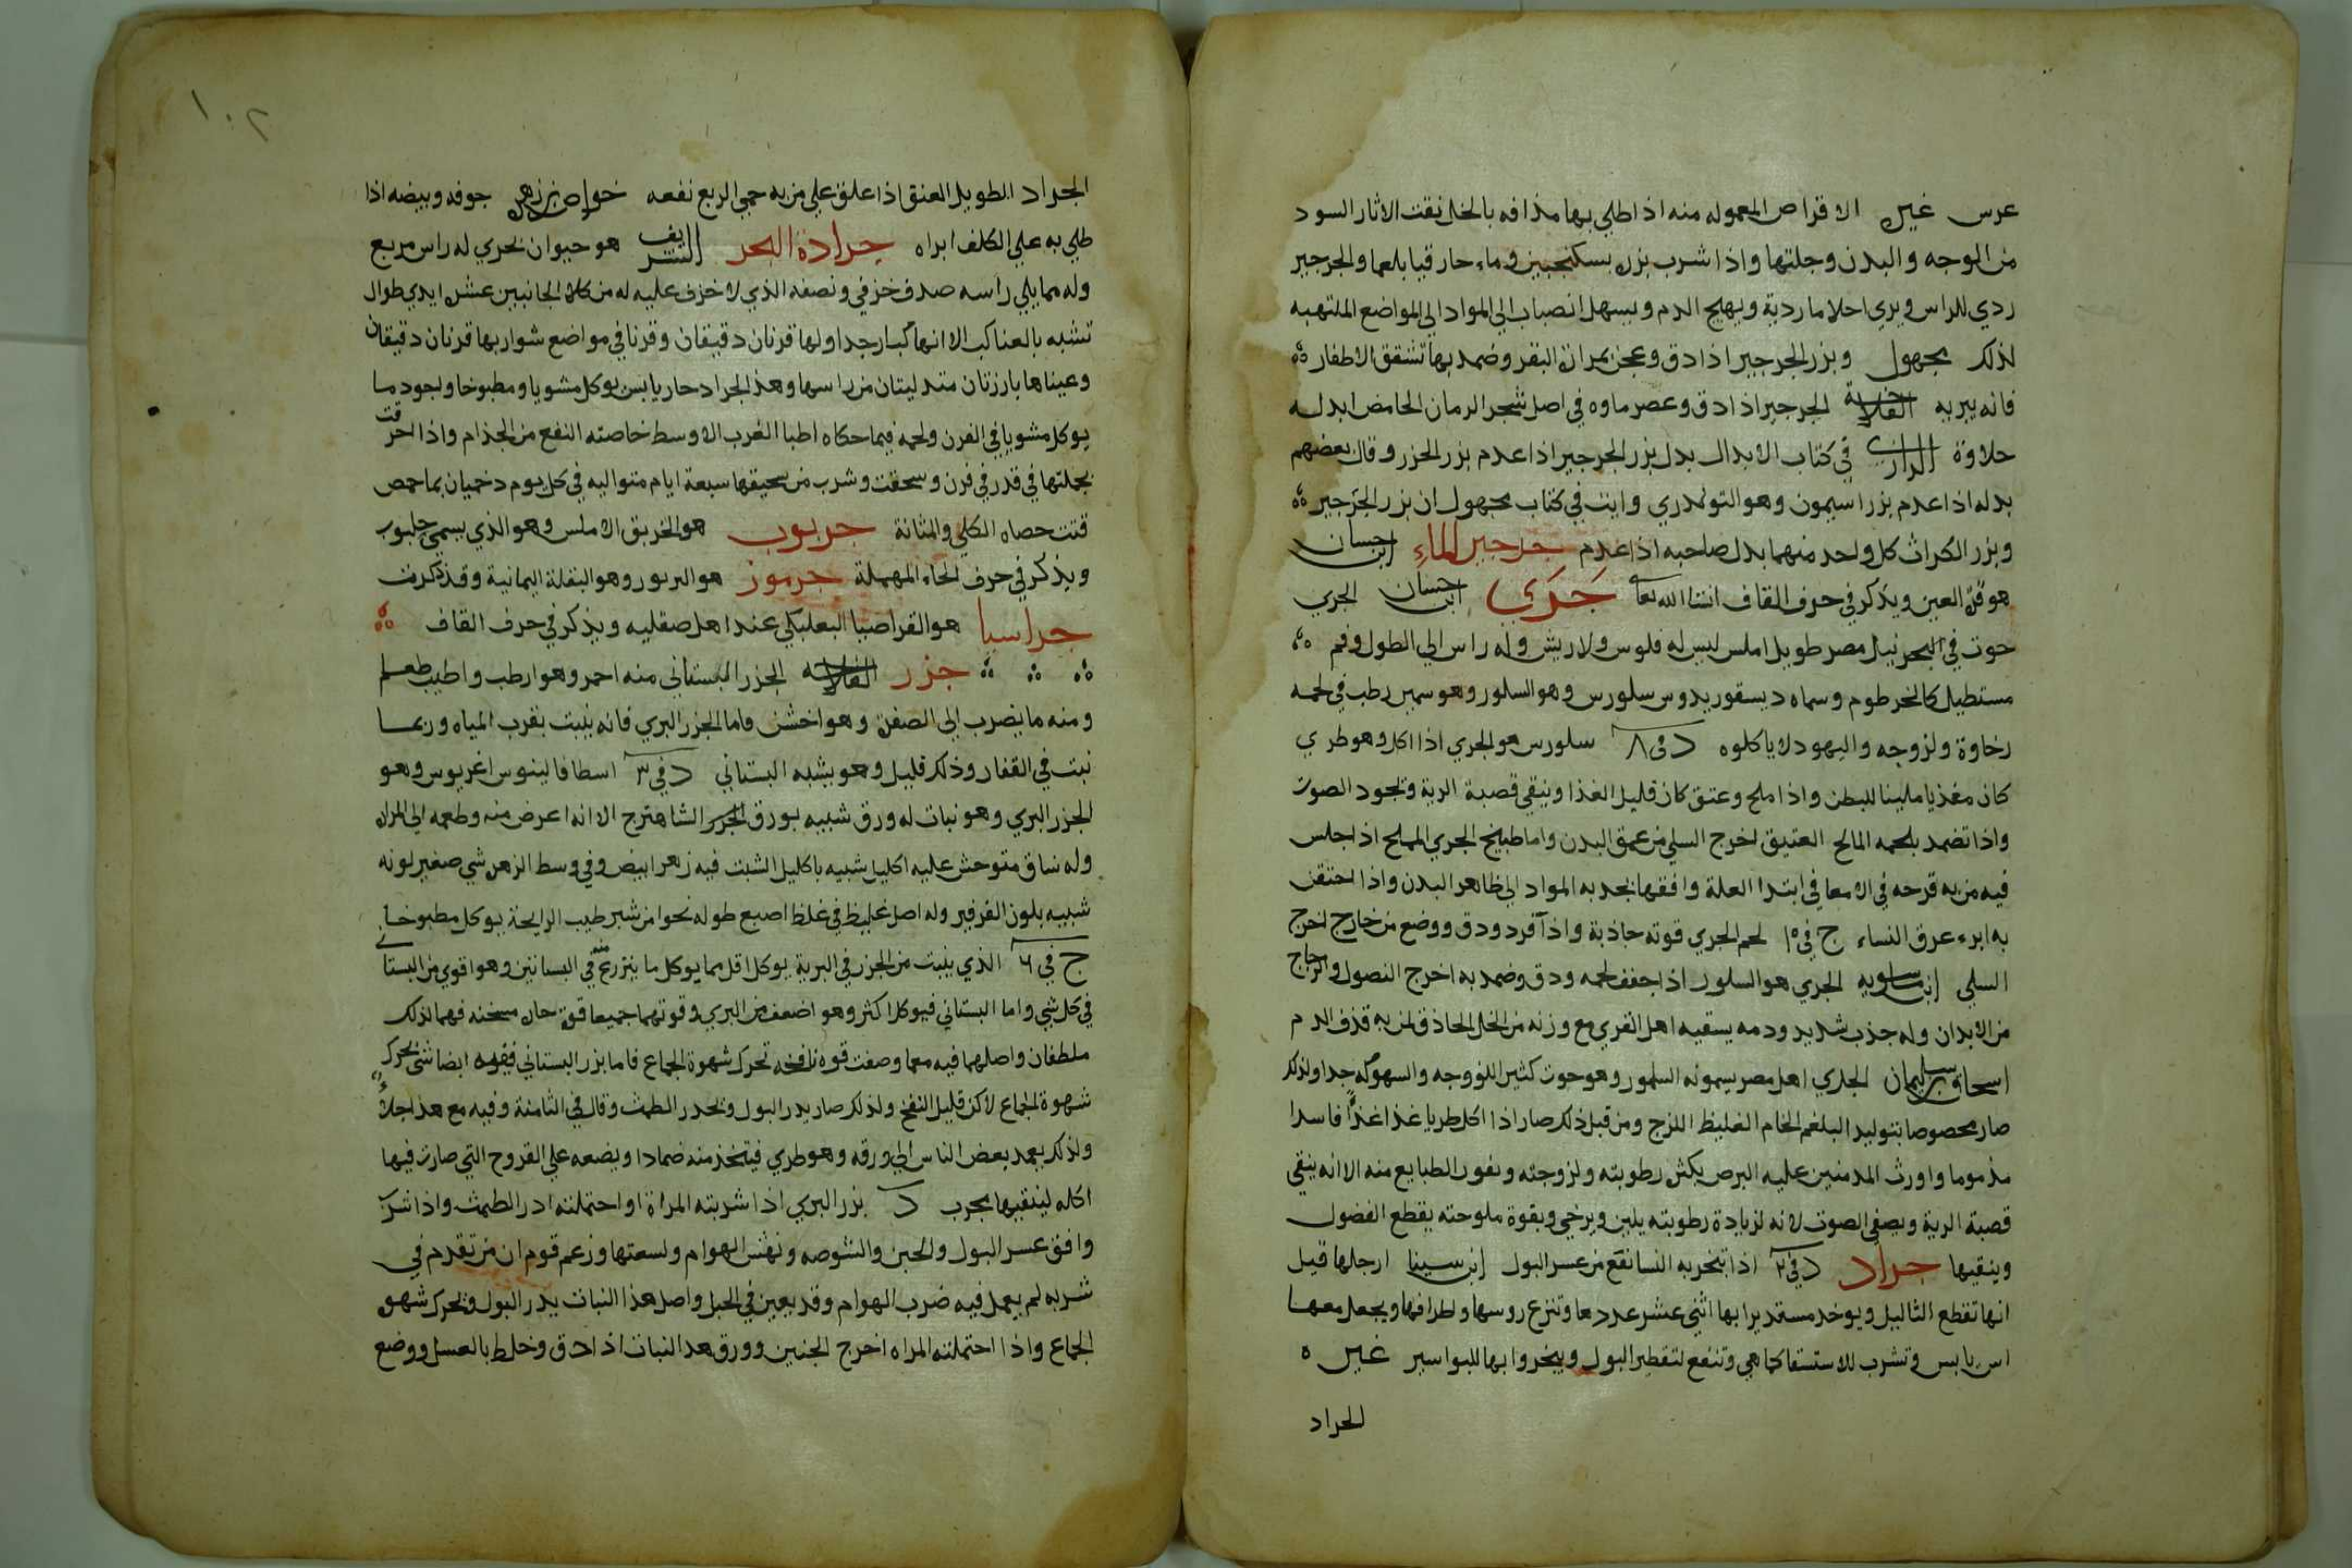 عرس غيره الاقراص المعموله منه اذا طلي بها مذافه بالخل نقت الاثار السود
من الوجه والبدن وجلتها واذا شرب بزره بسكنجبين وماء حار قيا بلغما والجرجير
ردي للراس ويري احلاما ردية ويهيج الدم ويسهل انصباب المواد الي المواضع الملتهبه
لذلك مجهول وبزر الجرجير اذا دق وعجن بمرارة البقر وضمد بها تشقق الاظفار
فانه يبريه الفلاحة الجرجير اذا دق وعصر ماوه في اصل شجر الرمان الحامض ابدله
حلاوة الرازي في كتاب الابدال بدل بزر الجرجير اذا عدم بزر الجزر وقال بعضهم
بدله اذا عدم بزر اسيمون وهو التودري وايت في كتاب مجهول ان بزر الجرجير
وبزر الكراث كل واحد منهما بدل صاحبه اذا عدم جرجير الماء ابن حسان
هو قرة العين ويذكر في حرف القاف انشا الله تعا جري ابن حسان الجري
حوت في نيل مصر طويل املس ليس له فلوس ولا ريش وله راس الي الطول وفم
مستطيل كالخرطوم وسماه ديسقوريدوس سلورس وهو السلور وهو سمين رطب في لحمه
رخاوة ولزوجه واليهود لا ياكلوه د في ٨ سلورس هو الجري اذا اكل وهو طري
كان مغذيا ملينا للبطن واذا ملح وعتق كان قليل الغذا وينقي قصبة الرية ويجود الصوت
واذا تضمد بلحمه المالح العتيق اخرج السلي من عمق البدن واما طبيخ الجري المملح اذا جلس
فيه من به قرحه في الامعا في ابتدا العلة وافقها بجذبه المواد الي ظاهر البدن واذا احتقن
به ابرء عرق النساء ج في ١٥ لحم الجري قوته جاذبة واذا افرد ودق ووضع من خارج اخرج
السلي ابن ماسويه الجري هو السلور اذا جفف لحمه ودق وضمد به اخرج النصول والزجاج
من الابدان وله جذب شديد ودمه يسقيه اهل القري مع وزنه من الخل الحاذق لمن به قذف الدم
اسحاق بن سليمان الجري اهل مصر يسمونه السلور وهو حوت كثير اللزوجه والسهوكه جدا ولذلك
صار مخصوصا بتوليد البلغم الخام الغليظ اللزج ومن قبل ذلك صار اذا اكل طريا غذا غذاً فاسدا
مذموما واورث المدمنين عليه البرص بكثره رطوبته ولزوجته ونفور الطبايع منه الا انه ينقي
قصبة الرية ويصفي الصوت لانه لزيادة رطوبته يلين ويرخي وبقوة ملوحته يقطع الفضول
وينقيها جراد د في ٢ اذا تبخر به النسا نفع من عسر البول ابن سينا ارجلها قيل
انها تقطع الثاليل ويوخذ مستديرا بها اثني عشر عددها وتنزع روسها واطرافها ويجعل معها
اس يابس وتشرب للاستسقا كما هي وتنفع لتقطير البول ويبخروا بها للبواسير غيره
الجراد
١٠٢
الجراد الطويل العنق اذا علق علي من به حمي الربع نفعه خواص بن زهر جوفه وبيضه اذا
طلي به علي الكلف ابراه جرادة البحر الشريف هو حيوان بحري له راس مربع
وله مما يلي راسه صدف خزفي ونصفه الذي لا خزف عليه له من كلا الجانبين عشر ايدي طوال
تشبه بالعناكب الا انها كبار جدا ولها قرنان دقيقان وقرنا في مواضع شواربها قرنان دقيقان
وعيناها بارزتان متدليتان من راسها وهذا الجراد حار يابس يوكل مشويا ومطبوخا واجود ما
يوكل مشويا في الفرن ولحمه فيما حكاه اطبا الغرب الاوسط خاصته النفع من الجذام واذا احرقت
بجملتها في قدر في فرن وسحقت وشرب من سحيقها سبعة ايام متواليه في كل يوم دخميان بما حمص
فتت حصاه الكلي والمثانة جربوب هو الخربق الاملس وهو الذي يسمي حلبوب
ويذكر في حرف الحاء المهملة جرموز هو البربور وهو البقلة اليمانية وقد ذكرت
جراسيا هو القراصيا البعلبكي عند اهل صقليه ويذكر في حرف القاف
جزر الفلاحه الجزر البستاني منه احمر وهو ارطب واطيب طعما
ومنه ما يضرب الي الصفرة وهو اخشن فاما الجزر البري فانه ينبت بقرب المياه وربما
نبت في القفار وذلك قليل وهو يشبه البستاني د في ٣ اسطافالينوس اغريوس وهو
الجزر البري وهو نبات له ورق شبيه بورق الشاهترج الا انه اعرض منه وطعمه الي المراره
وله ساق متوحش عليه اكليل شبيه باكليل الشبت فيه زهر ابيض وفي وسط الزهر شي صغير لونه
شبيه بلون الفرفير وله اصل غليظ في غلظ اصبع طوله نحوا من شبر طيب الرايحة يوكل مطبوخا
ج في ٦ الذي ينبت من الجزر في البرية يوكل اقل مما يوكل ما يزرع منه في البساتين وهو اقوي من البستا
في كل شي واما البستاني فيوكل اكثر وهو اضعف من البري وقوتهما جميعا قوة حاره مسخنه فهما لذلك
ملطفان واصلهما فيه مع ما وصفت قوه نافخه تحرك شهوة الجماع فاما بزر البستاني ففيه ايضا شي يحرك
شهوة الجماع لاكن قليل النفخ ولذلك صار يدر البول ويحدر الطمث وقال في الثامنة وفيه مع هذا جلاءٌ
ولذلك يعمد بعض الناس الي ورقه وهو طري فيتخذ منه ضمادا ويضعه علي القروح التي صارت فيها
اكله لينقيها مجرب د بزر البري اذا شربته المراة او احتملته ادر الطمث واذا شرب
وافق عسر البول والحبن والشوصه ونهش الهوام ولسعتها وزعم قوم ان من تقدم في
شربه لم يعمل فيه ضرب الهوام وقد يعين في الحبل واصل هذا النبات يدر البول ويحرك شهوة
الجماع واذا احتملته المراه اخرج الجنين وورق هذا النبات اذا دق وخلط بالعسل ووضع